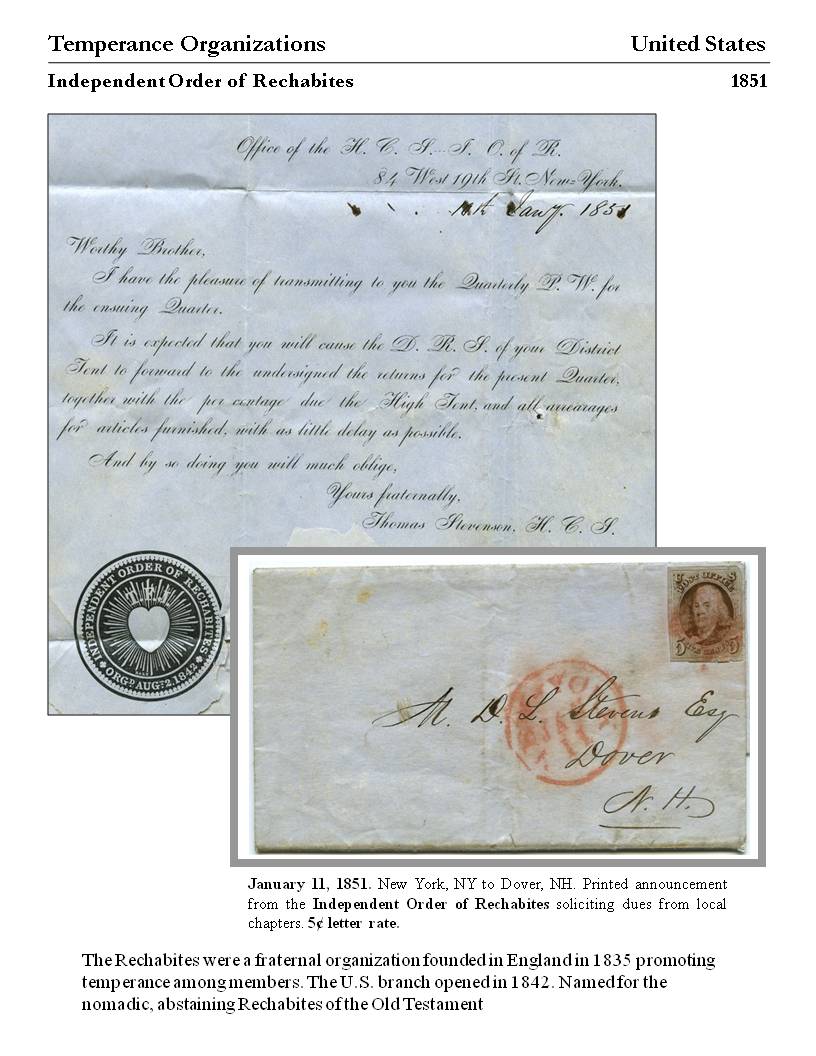 Temperance Organizations United States
Independent Order of Rechabites 1851
Office of the H. C. S.–I. O. of R.
84 West 19th St. New=York.
Jany. 1851
Worthy Brother,
I have the pleasure of transmitting to you the Quarterly P. W. for
the ensuing Quarter.
It is expected that you will cause the D. R. S. of your District
Tent to forward to the undersigned the returns for the present Quarter,
together with the per centage due the High Tent, and all arrearages
for articles furnished, with as little delay as possible.
And by so doing you will much oblige,
Yours fraternally,
Thomas Stevenson, H. C. S.
INDEPENDENT ORDER OF RECHABITES
ORGD. AUGT. 2, 1842
POST OFFICE
5 FIVE CENTS 5
JAN
11
M. D. L. Stevens Esq
Dover
N. H.
January 11, 1851. New York, NY to Dover, NH. Printed announcement
from the Independent Order of Rechabites soliciting dues from local
chapters. 5¢ letter rate.
The Rechabites were a fraternal organization founded in England in 1835 promoting
temperance among members. The U.S. branch opened in 1842. Named for the
nomadic, abstaining Rechabites of the Old Testament